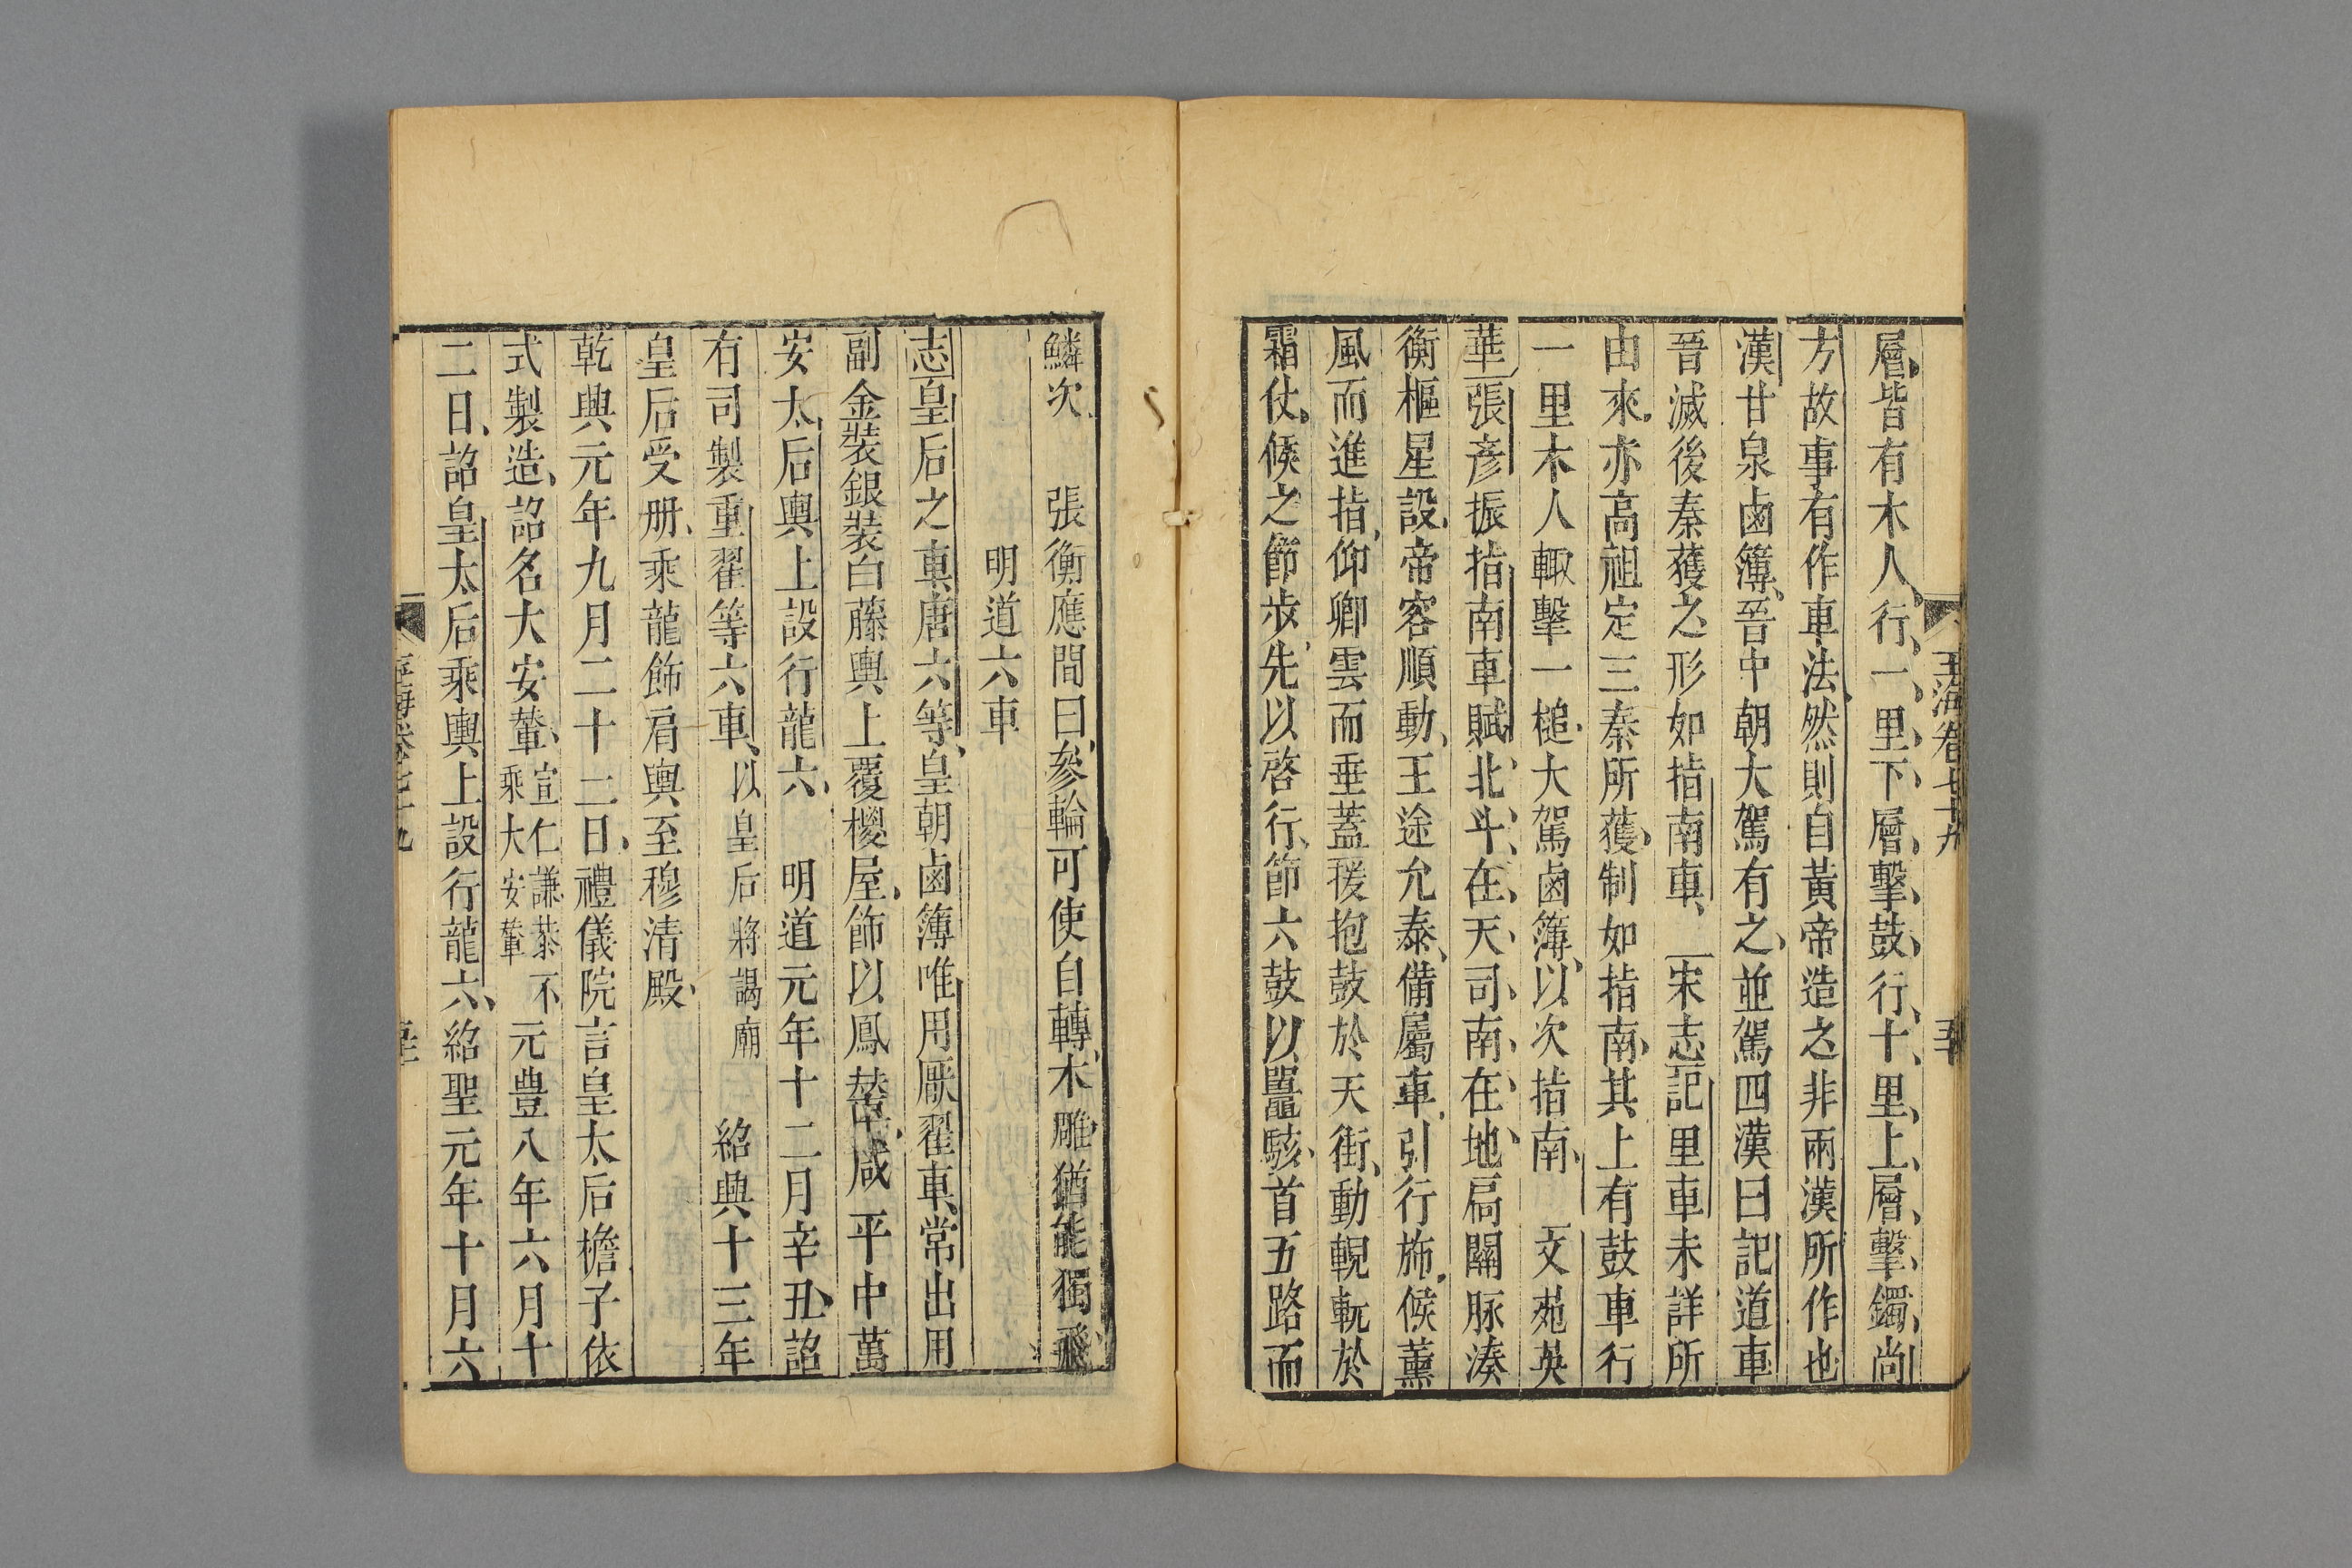 玉海卷七十九
層皆有木人行一里下層擊鼓行十里上層擊鐲尚
方故事有作車法然則自黃帝造之非兩漢所作也
漢甘泉鹵簿晉中朝大駕有之並駕四漢曰記道車
晉滅後秦獲之形如指南車 宋志記里車未詳所
由來亦高祖定三秦所獲制如指南其上有鼓車行
一里木人輙擊一槌大駕鹵簿以次指南 文苑英
華張彥振指南車賦北斗在天司南在地扃關脉湊
衡樞星設帝容順動王途允泰備屬車引行施候薰
風而進指仰卿雲而垂蓋援抱鼓於天街動輗軏於
霜仗候之節步先以啓行節六鼓以鼉駭首五路而
鱗次 張衡應間曰參輪可使自轉木雕猶能獨飛
明道六車
志皇后之車唐六等皇朝鹵簿唯用厭翟車常出用
副金裝銀裝白藤輿上覆椶屋飾以鳳輦咸平中萬
安太后輿上設行龍六 明道元年十二月辛丑詔
有司製重翟等六車以皇后將謁廟 紹興十三年
皇后受册乘龍飾肩輿至穆清殿
乾興元年九月二十二日禮儀院言皇太后檐子依
式製造詔名大安輦宣仁謙恭不乘大安輦元豊八年六月十
二日詔皇太后乘輿上設行龍六紹聖元年十月六